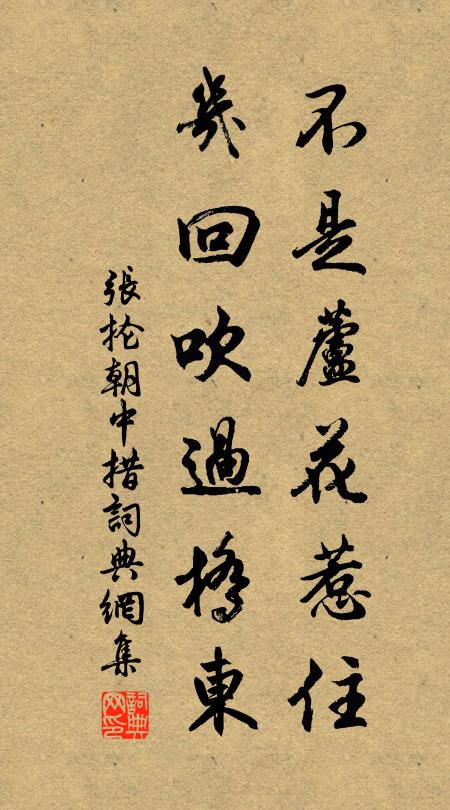 不是蘆花惹住
幾回吹過橋東
張抡朝中措詞典網集
詞典網印